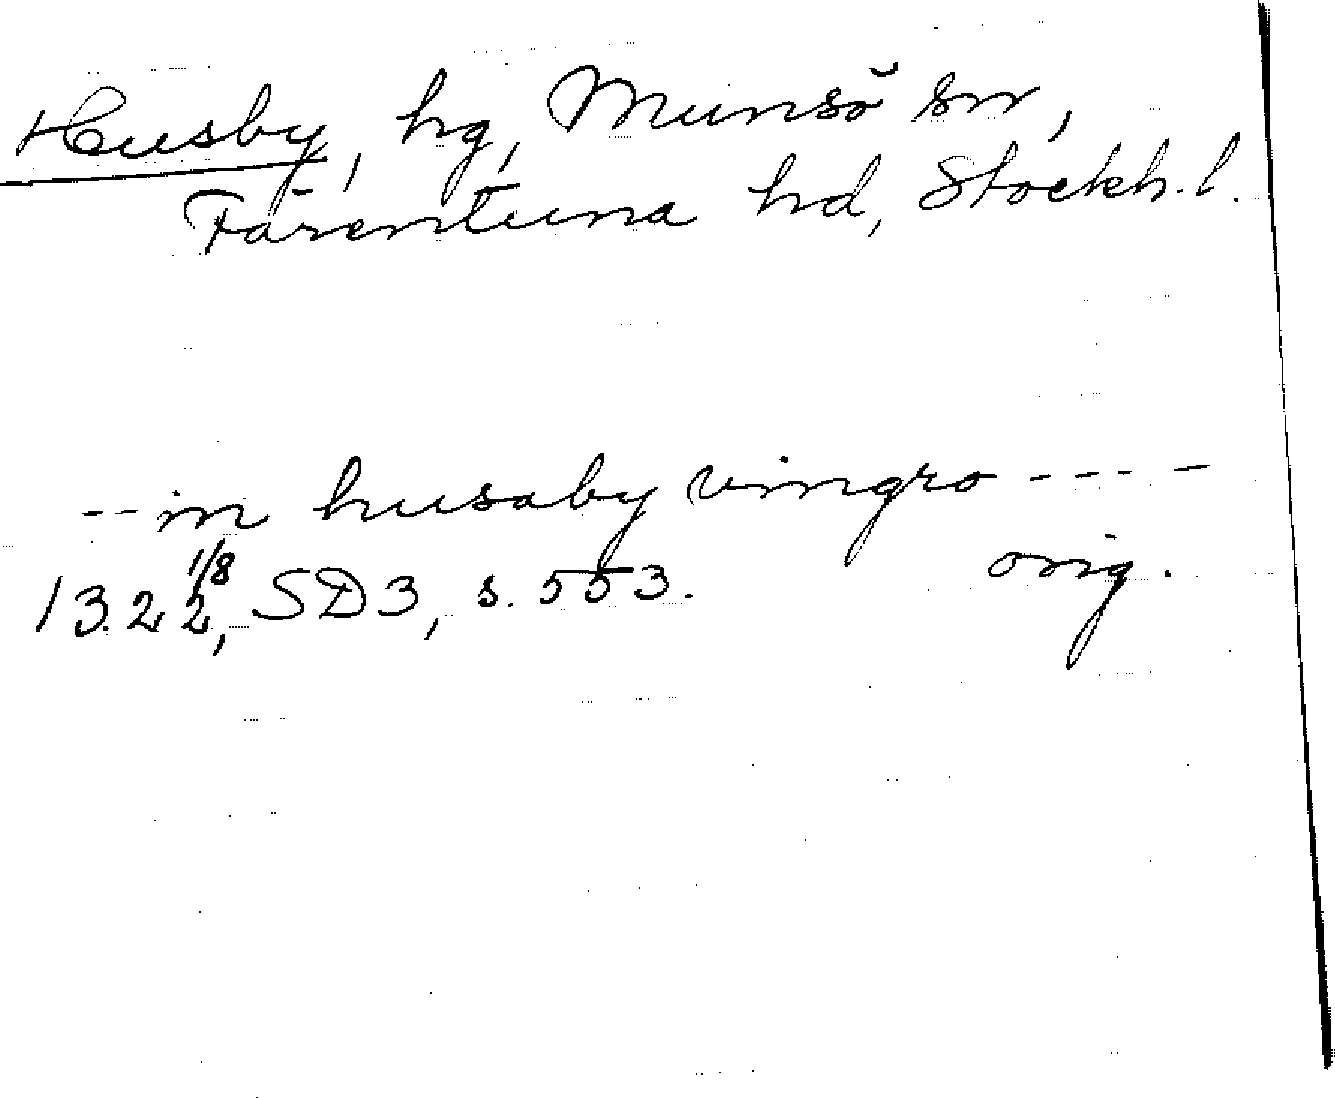 Husby, hg, Munsö sn,
Färentuna hd, Stockh. l.
-- in husaby vingro - - - -
1322 1/8, SD3, s. 553. orig.